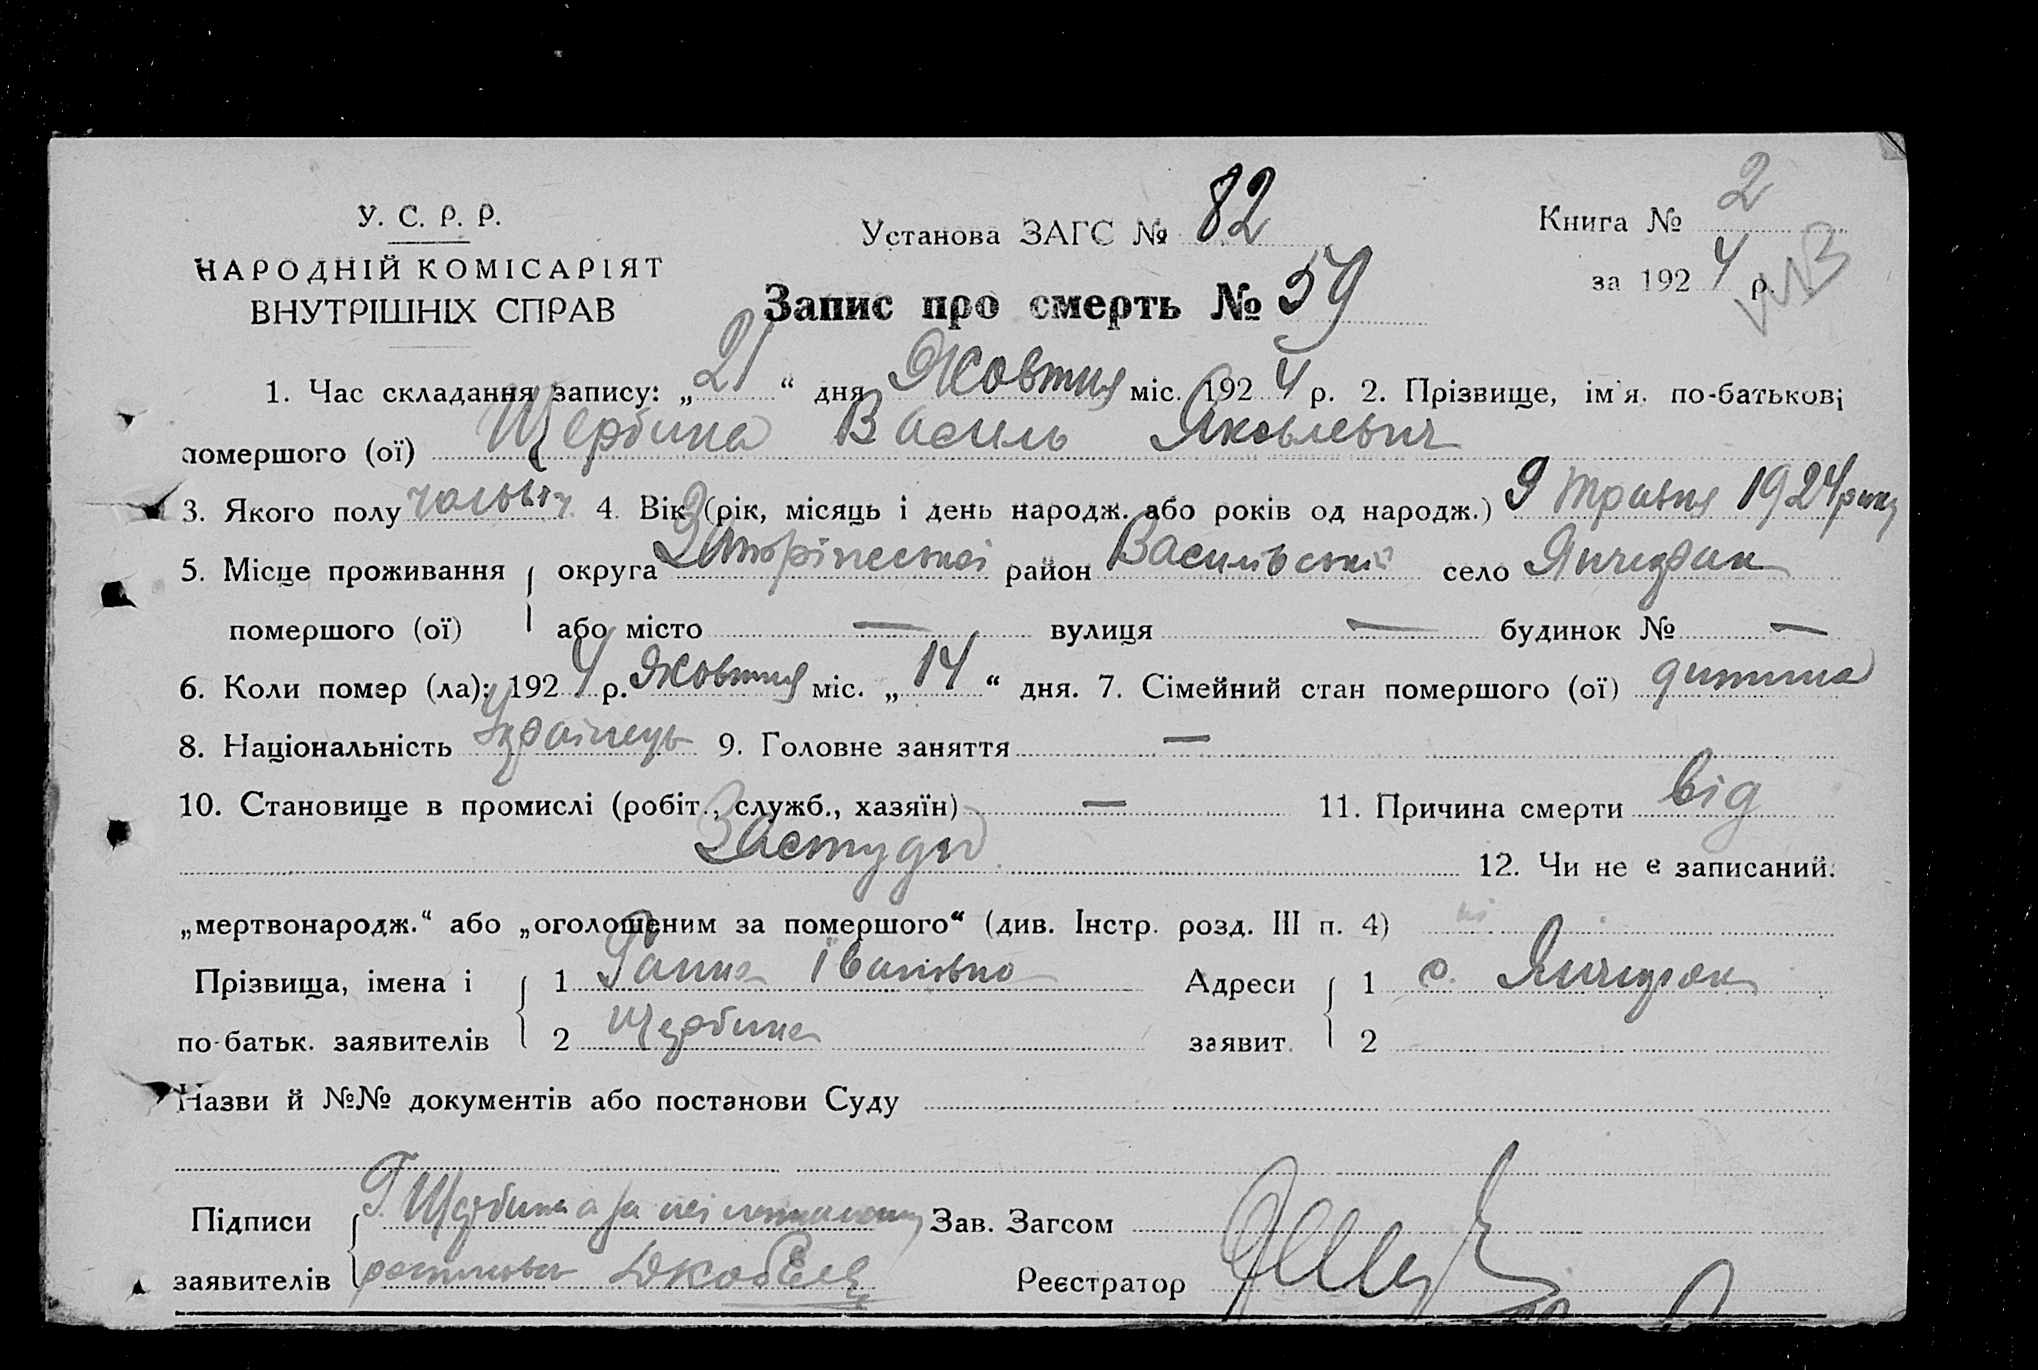 У. С. Р. Р.
НАРОДНІЙ КОМІСАРІЯТ
ВНУТРІШНІХ СПРАВ
Установа ЗАГС № 82
Книга № 2
за 1924 р.
Запис про смерть № 59
1. Час складання запису: „21“ дня Жовтня міс. 1924 р. 2. Прізвище, ім'я. по-батькові
помершого (ої) Щербина Василь Яковлевич
3. Якого полу 4. Вік (рік, місяць і день народж. або років од народж.) 9 травня 1924 року
5. Місце проживання округа район Васильівський село Янчекрак
помершого (ої) або місто — вулиця — будинок № —
6. Коли помер (ла): 1924 р. Жовтня міс. „14“ дня. 7. Сімейний стан помершого (ої) дитина
8. Національність Украінець 9. Головне заняття —
10. Становище в промислі (робіт., служб., хазяїн) — 11. Причина смерти від
Застуди 12. Чи не є записаний:
„мертвонародж.“ або „оголошеним за помершого“ (див. Інстр. розд. III п. 4) ні
Прізвища, імена і 1 Ганна Івановна Адреси 1 с. Янчекрак
по-батьк. заявителів 2 Щербина заявит. 2
Назви й №№ документів або постанови Суду
Підписи Г. Щербина а за неі Зав. Загсом
заявителів Реєстратор